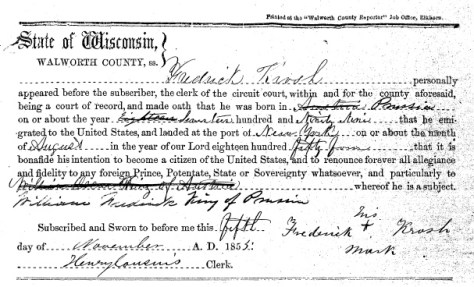 Printed at the "Walworth County Reporter" Job Office, Elkhorn.
State of Wisconsin,
WALWORTH COUNTY, ss.
Fredrick Krosh personally
appeared before the subscriber, the clerk of the circuit court, within and for the county aforesaid,
being a court of record, and made oath that he was born in Prussia
on or about the year Eighteen hundred and Nine that he emi-
grated to the United States, and landed at the port of New York on or about the month
of August in the year of our Lord eighteen hundred fifty four that it is
bonafide his intention to become a citizen of the United States, and to renounce forever all allegiance
and fidelity to any foreign Prince, Potentate, State or Sovereignty whatsoever, and particularly to
whereof he is a subject.
William Fredrick King of Prussia
Subscribed and Sworn to before me this fifth
day of November A. D. 1855.
Henry Cousins Clerk.
his
Frederick + Krosh
mark